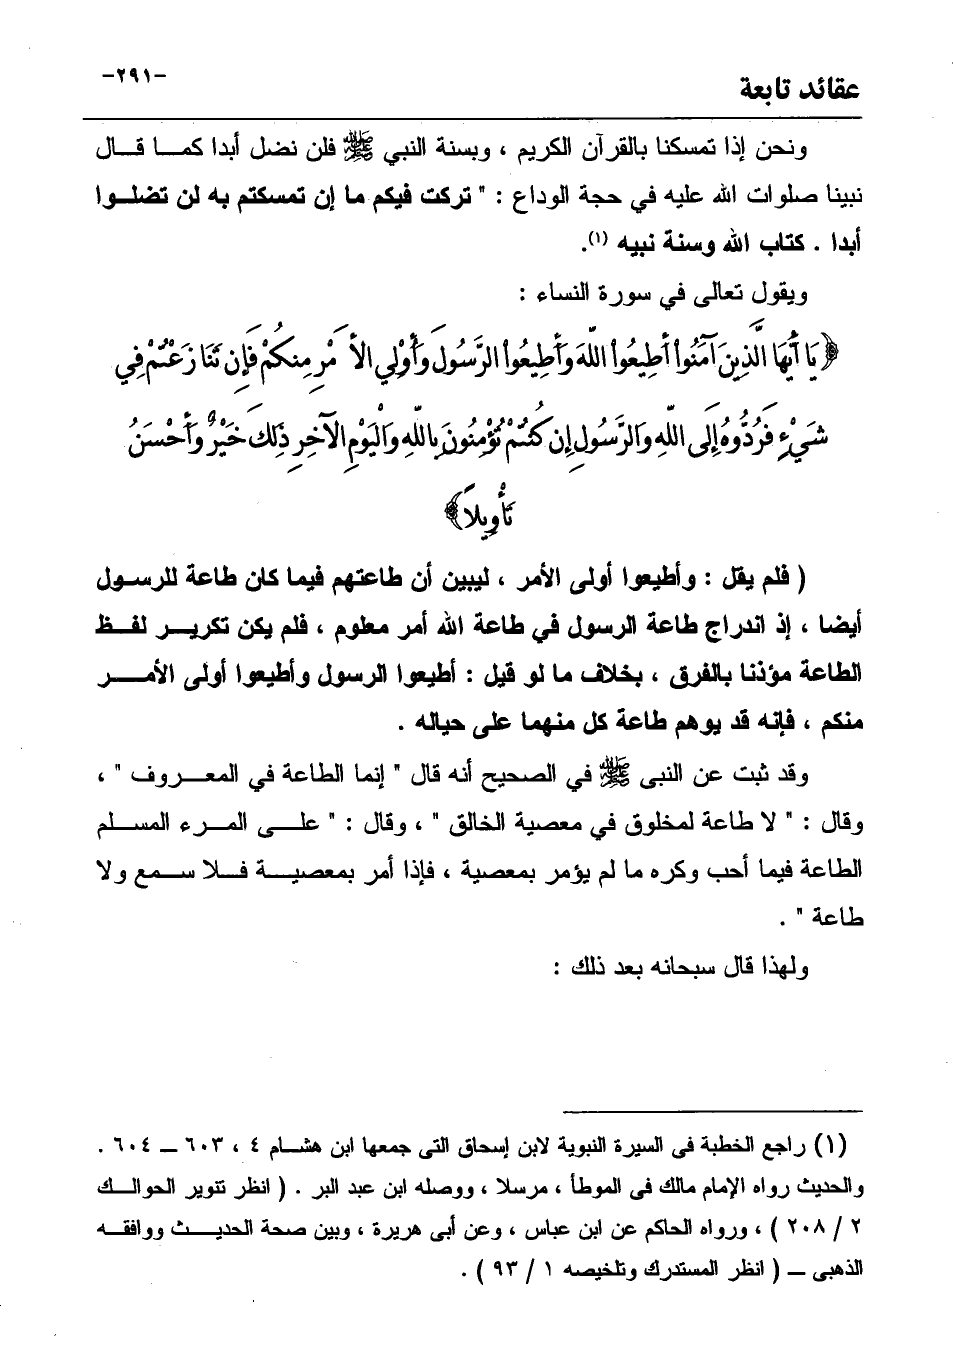 عقائد تابعة
-٢٩١-
ونحن إذا تمسكنا بالقرآن الكريم ، وبسنة النبي ﷺ فلن نضل أبدا كمـا قـال
نبينا صلوات الله عليه في حجة الوداع : " تركت فيكم ما إن تمسكتم به لن تضلـوا
أبدا . كتاب الله وسنة نبيه (١).
ويقول تعالى في سورة النساء :
﴿يَا أَيُّهَا الَّذِينَ آمَنُواْ أَطِيعُواْ اللّهَ وَأَطِيعُواْ الرَّسُولَ وَأُوْلِي الأَمْرِ مِنكُمْ فَإِن تَنَازَعْتُمْ فِي
شَيْءٍ فَرُدُّوهُ إِلَى اللّهِ وَالرَّسُولِ إِن كُنتُمْ تُؤْمِنُونَ بِاللّهِ وَالْيَوْمِ الآخِرِ ذَلِكَ خَيْرٌ وَأَحْسَنُ
تَأْوِيلاً﴾
( فلم يقل : وأطيعوا أولى الأمر ، ليبين أن طاعتهم فيما كان طاعة للرسـول
أيضا ، إذ اندراج طاعة الرسول في طاعة الله أمر معلوم ، فلم يكن تكريـر لفـظ
الطاعة مؤذنا بالفرق ، بخلاف ما لو قيل : أطيعوا الرسول وأطيعوا أولى الأمـر
منكم ، فإنه قد يوهم طاعة كل منهما على حياله .
وقد ثبت عن النبى ﷺ في الصحيح أنه قال " إنما الطاعة في المعـروف " ،
وقال : " لا طاعة لمخلوق في معصية الخالق " ، وقال : " علـى المـرء المسـلم
الطاعة فيما أحب وكره ما لم يؤمر بمعصية ، فإذا أمر بمعصيـة فـلا سـمع ولا
طاعة " .
ولهذا قال سبحانه بعد ذلك :
(١) راجع الخطبة فى السيرة النبوية لابن إسحاق التى جمعها ابن هشـام ٤ ، ٦٠٣ ــ ٦٠٤ .
والحديث رواه الإمام مالك فى الموطأ ، مرسلا ، ووصله ابن عبد البر . ( انظر تنوير الحوالـك
٢ / ٢٠٨ ) ، ورواه الحاكم عن ابن عباس ، وعن أبى هريرة ، وبين صحة الحديـث ووافقـه
الذهبى ــ ( انظر المستدرك وتلخيصه ١ / ٩٣ ) .